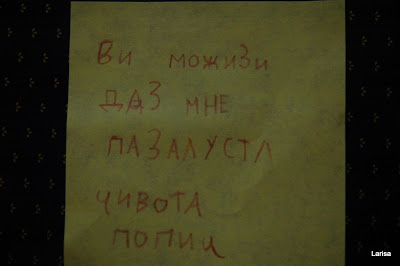 Ви можиЗи
ДАЗ мне
ПАЗАЛУСТА
чивота
попиц
Larisa